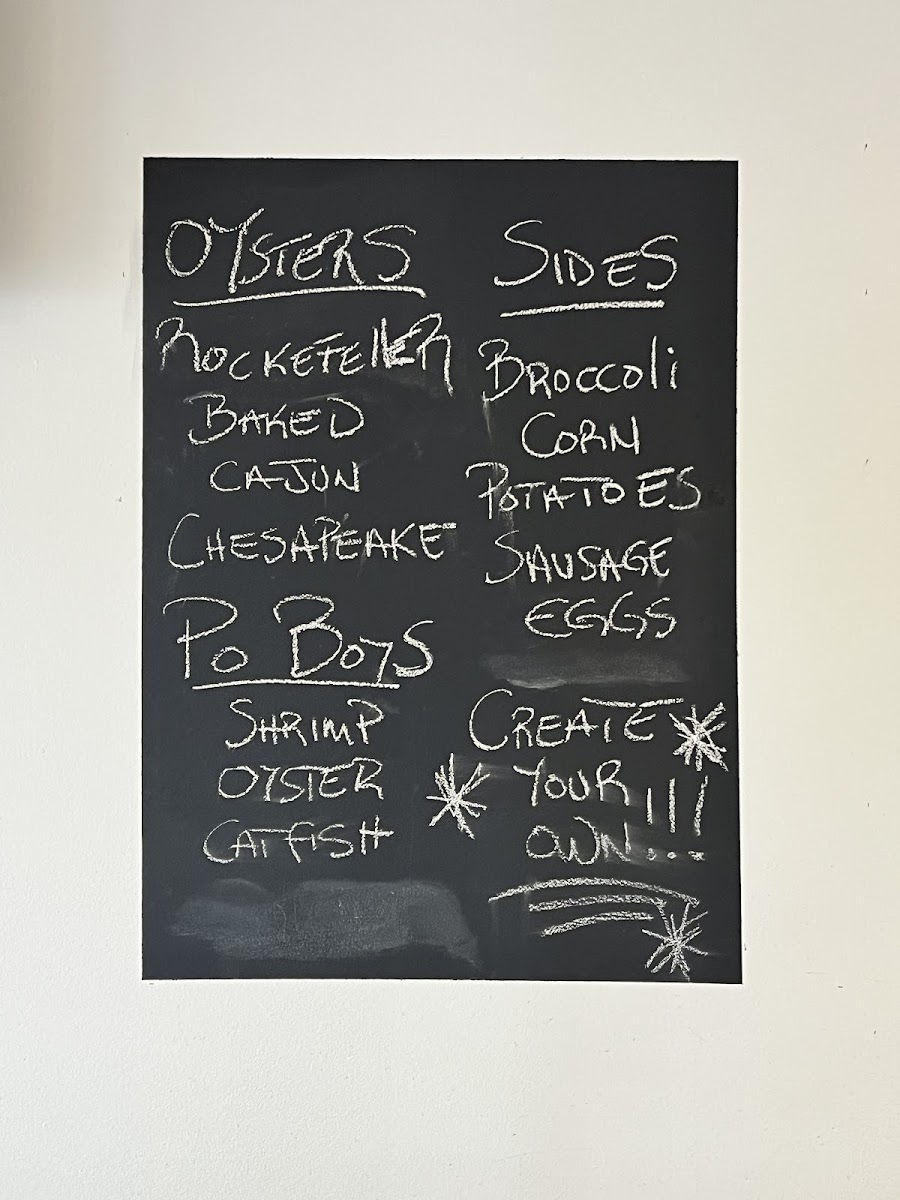 OYSTERS
ROCKEFELLER
BAKED
CAJUN
CHESAPEAKE
PO BOYS
SHRIMP
OYSTER
CATFISH
SIDES
BROCCOLi
CORN
POTATOES
SAUSAGE
EGGS
CREATE
YOUR
OWN...!!!